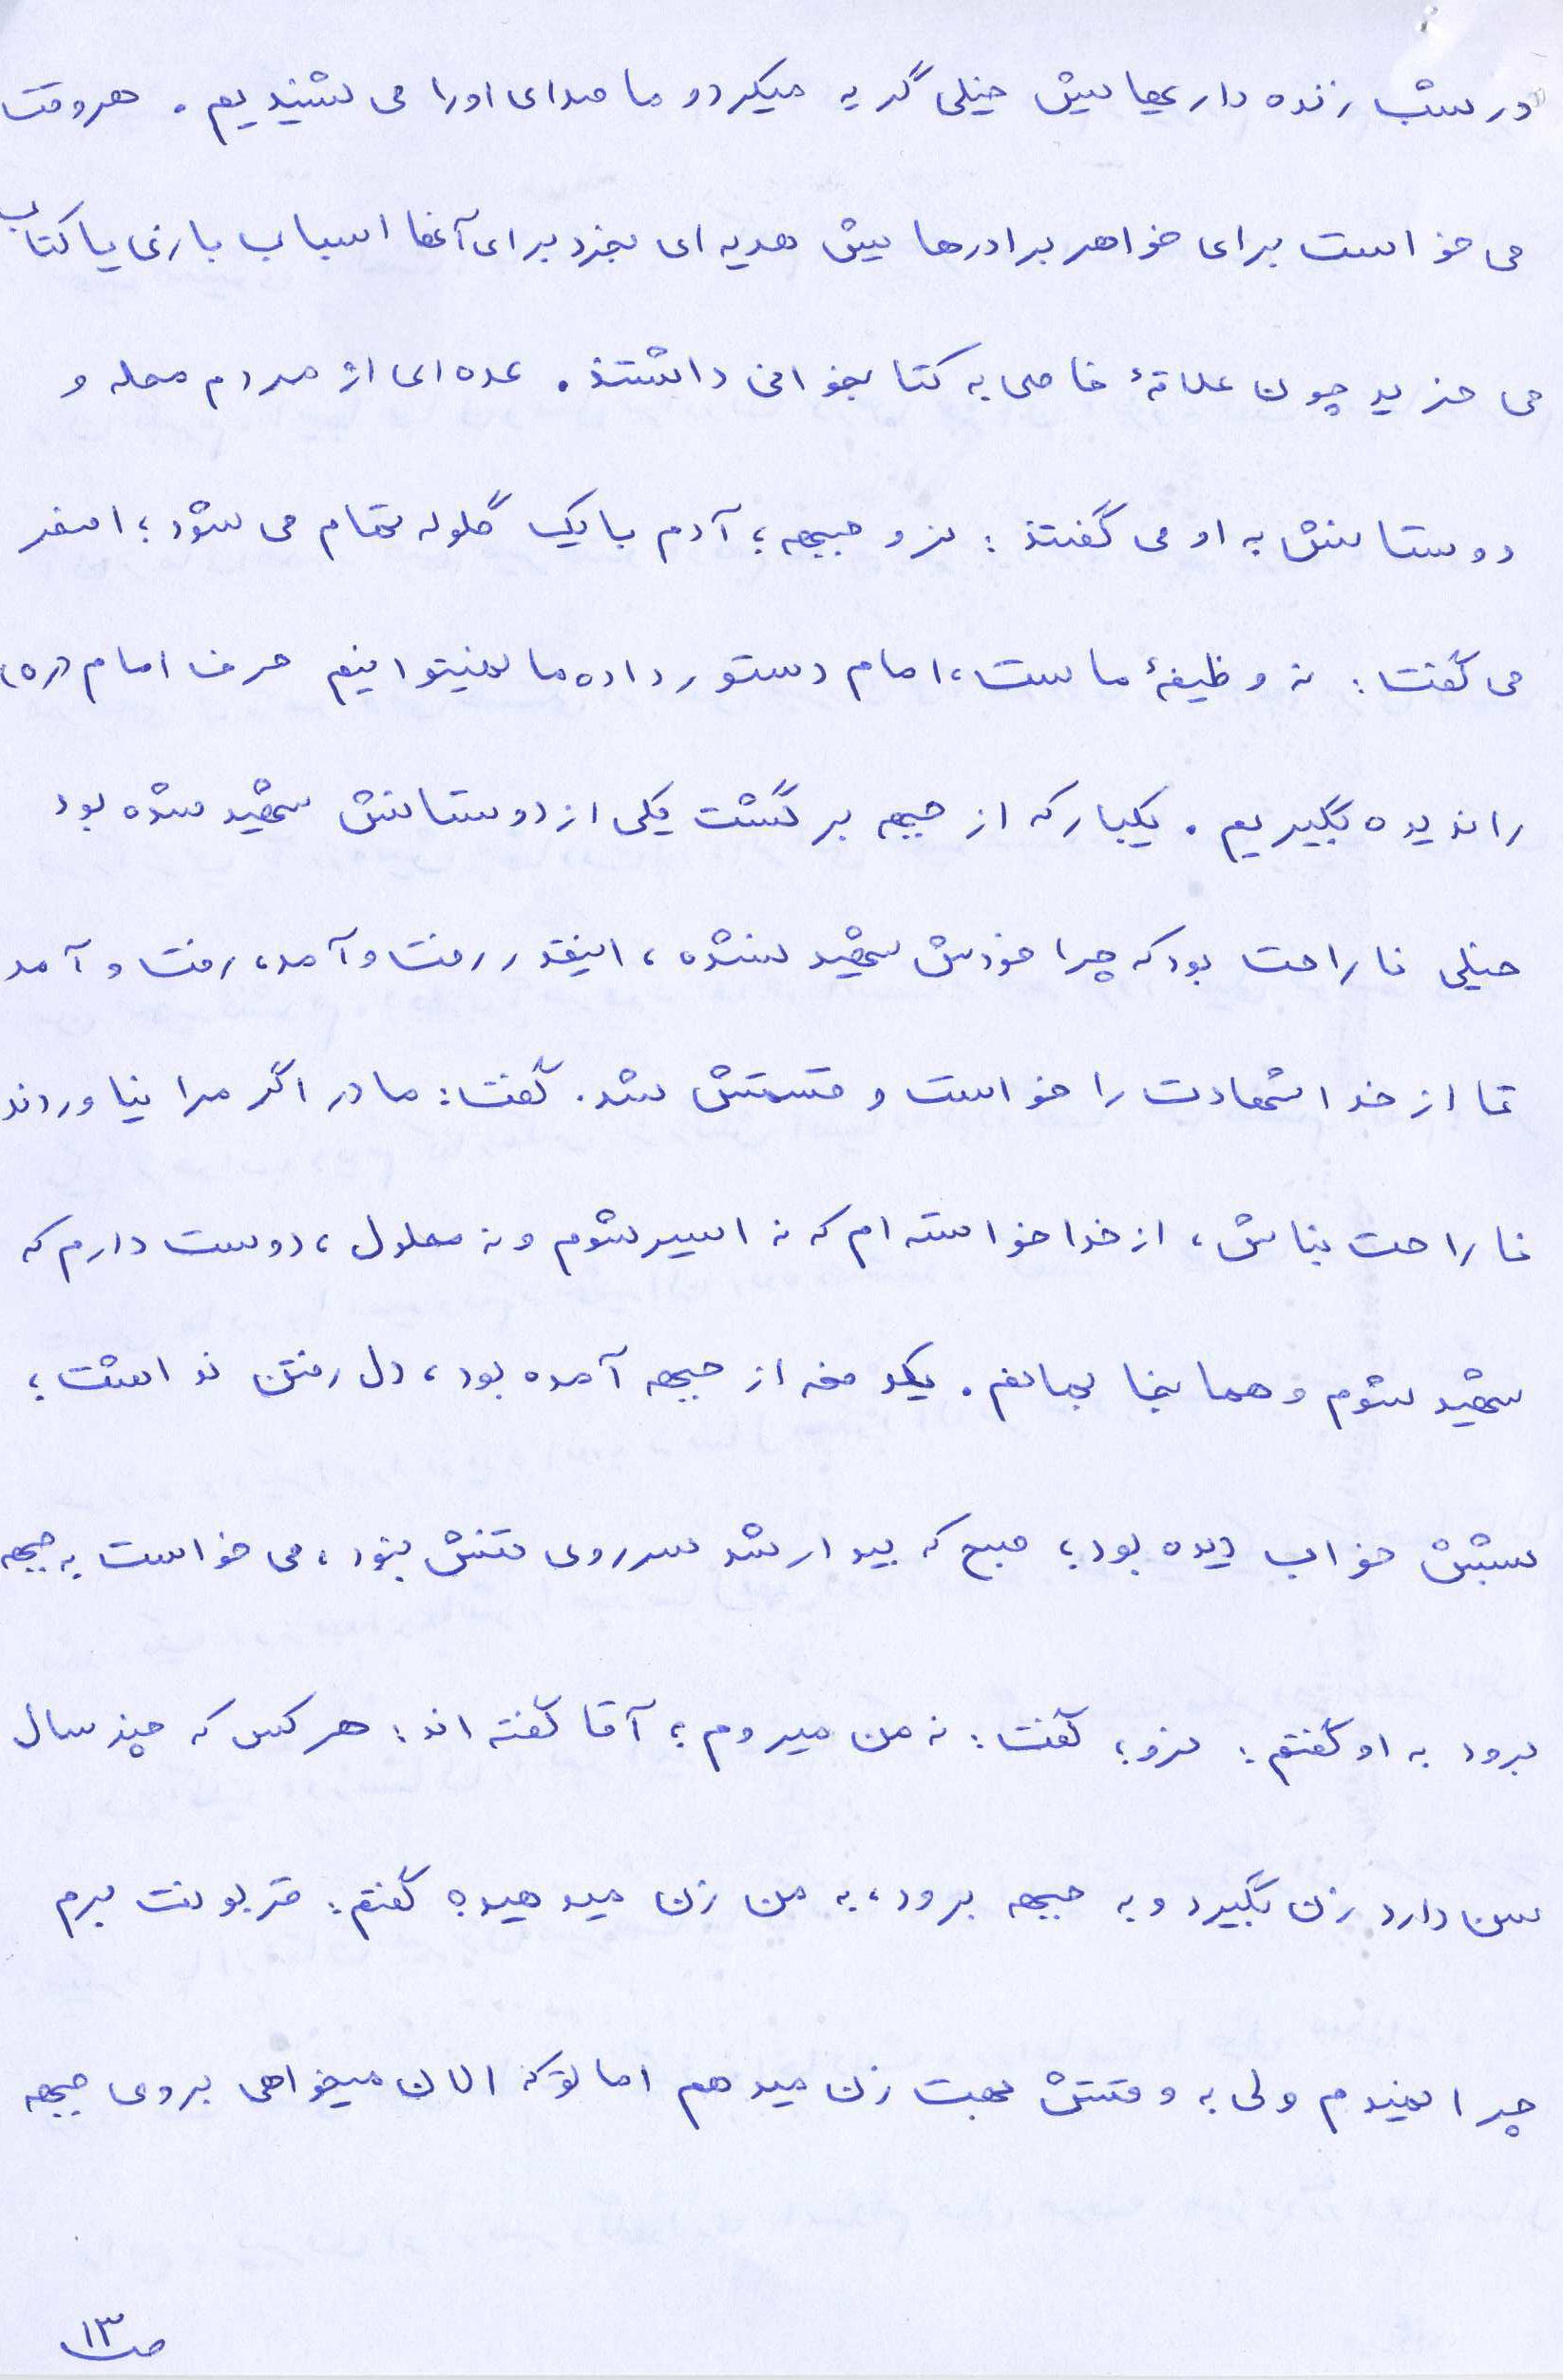 در شب زنده داریهایش خیلی گریه میکرد و ما صدای او را می شنیدیم . هر وقت
می خواست برای خواهر برادرهایش هدیه ای بخرد برای آنها اسباب بازی یا کتاب
می خرید چون علاقهٔ خاصی به کتابخوانی داشتند . عده ای از مردم محله و
دوستانش به او می گفتند : نرو جبهه ؛ آدم با یک گلوله تمام می شود ؛ اصغر
می گفت : نه وظیفهٔ ماست ، امام دستور داده ما نمیتوانیم حرف امام (ره)
را ندیده بگیریم . یکبار که از جبهه برگشت یکی از دوستانش شهید شده بود
خیلی ناراحت بود که چرا خودش شهید نشده ، اینقدر رفت و آمد ، رفت و آمد
تا از خدا شهادت را خواست و قسمتش شد . گفت : مادر اگر مرا نیاوردند
ناراحت نباش ، از خدا خواسته ام که نه اسیر شوم و نه معلول ، دوست دارم که
شهید شوم و همانجا بمانم . یکدفعه از جبهه آمده بود ، دل رفتن نداشت ؛
شبش خواب دیده بود ؛ صبح که بیدار شد سر روی تنش نبود ، می خواست به جبهه
برود به او گفتم : نرو ؛ گفت : نه من میروم ؛ آقا گفته اند : هر کس که چند سال
سن دارد زن بگیرد و به جبهه برود ، به من زن میدهید ؟ گفتم : قربونت برم
چرا نمیدم ولی به وقتش بهت زن میدهم اما تو که الان میخواهی بروی جبهه
ص۱۳